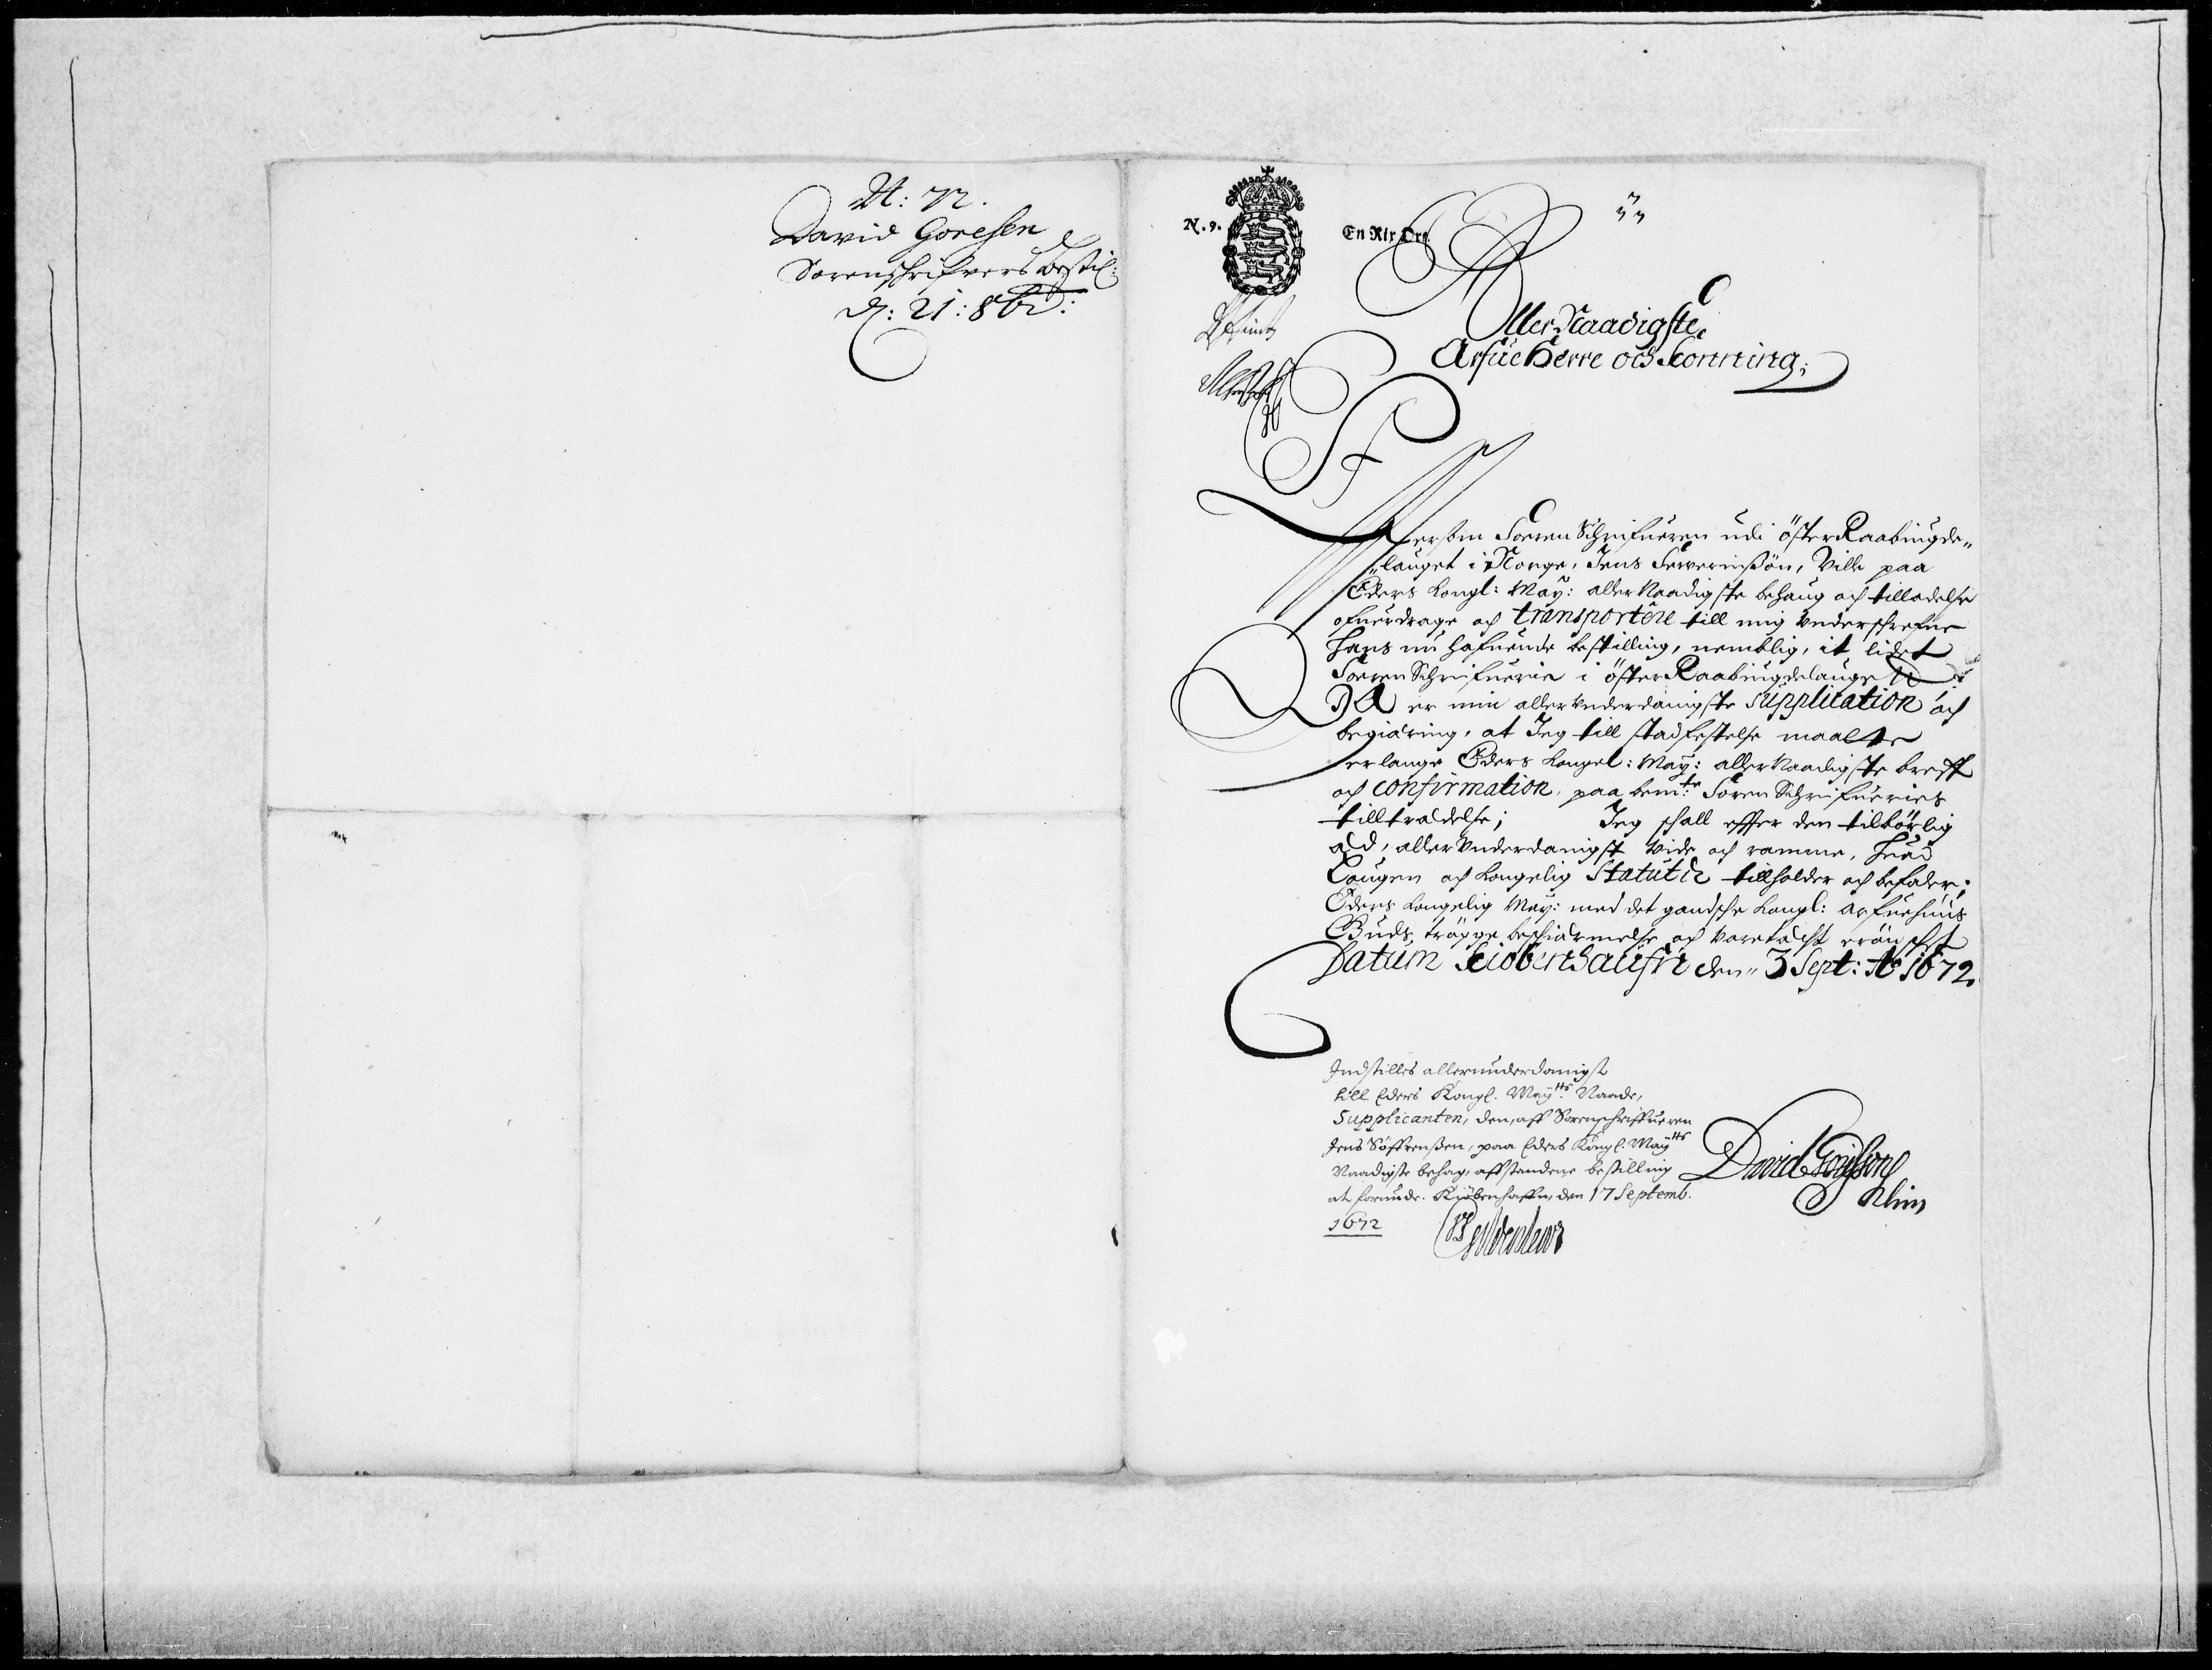 N: 72.
David Goresen
Sorenschrifvers bestil:
d: 21: 8br:
N. 9.
En Rix Ort.
Aller Naadigste
Arfue Herre och Konning;
Efftersom Soeren Schrifueren udi öster Raabiugde„
„lauget i Norge, Jens Severinßön, Ville paa
Eders Kongl: May: aller Naadigste behaug och tilladelse
ofuerdrage og transportere till mig Underschrefne
hans nu hafuende bestilling, nemblig, it lidet
Soeren Schrifuerie i öster Raabiugdelauget
Da er min aller Underdanigste Supplication och
begiäring, at Jeg till stadfestelse maatte
erlange Eders Kongel: May: aller Naadigste breff
och confirmation, paa bem:te Soren Schrifueries
tilltrædelse; Jeg schall effter den tilbörlig
æd, aller Underdanigst Vide och ramme, huad
Lougen och Kongelig Statuter tillholder och befaler;
Eders Kongelig May: med det gandsche Kongl: Arfuehuus
Guds trögge beschiærmelse och varetæcht erönschet
Datum Kiöbenhaufn den„ 3 Sept: Ao 1672.
Indstilles allerunderdanigst
till Eders Kongl. Mayts Naade,
Supplicanten, den, aff Sorenschriffueren
Jens Söffrenßen, paa Eders Kongl: Mayts
Naadigste behag, affstandene bestilling
at forunde. Kiöbenhaffn, den 17 Septemb.
1672
Gyldenlewe
David Görißøn
Klim